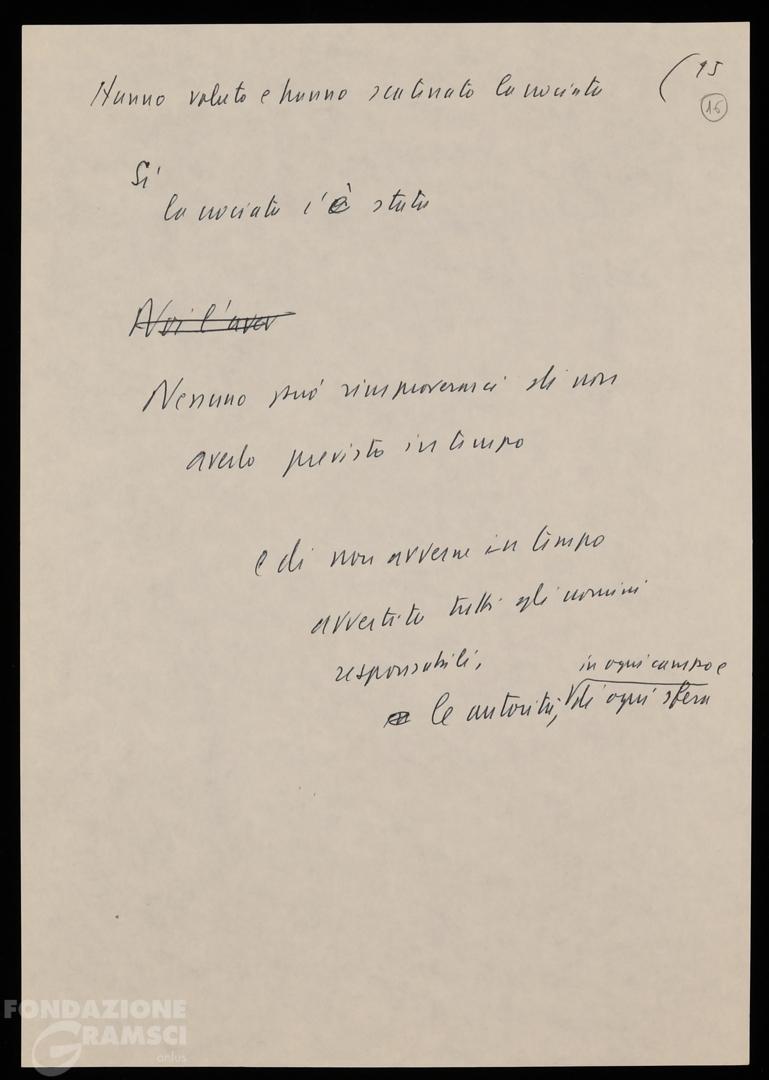 Hanno voluto e hanno scatenato la crociata
( 15
16
Si'
la crociata c'è stata
Noi l'aver
Nessuno può rimproverarci di non
averlo previsto in tempo
e di non averne in tempo
avvertito tutti gli uomini
responsabili,
in ogni campo e
le autorità, di ogni sfera
FONDAZIONE
GRAMSCI
onlus